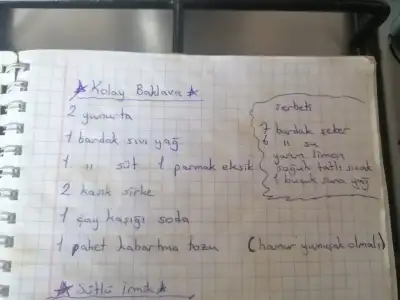 ★ Kolay Baklava ★
2 yumurta
1 bardak sıvı yağ
1 " süt 1 parmak eksik
2 kaşık sirke
1 çay kaşığı soda
1 paket kabartma tozu (hamur yumuşak olmalı)
şerbeti
7 bardak şeker
6 " su
yarım limon
soğuk tatlı sıcak
1 buçuk sana yağ
★ Sütlü irmik ★